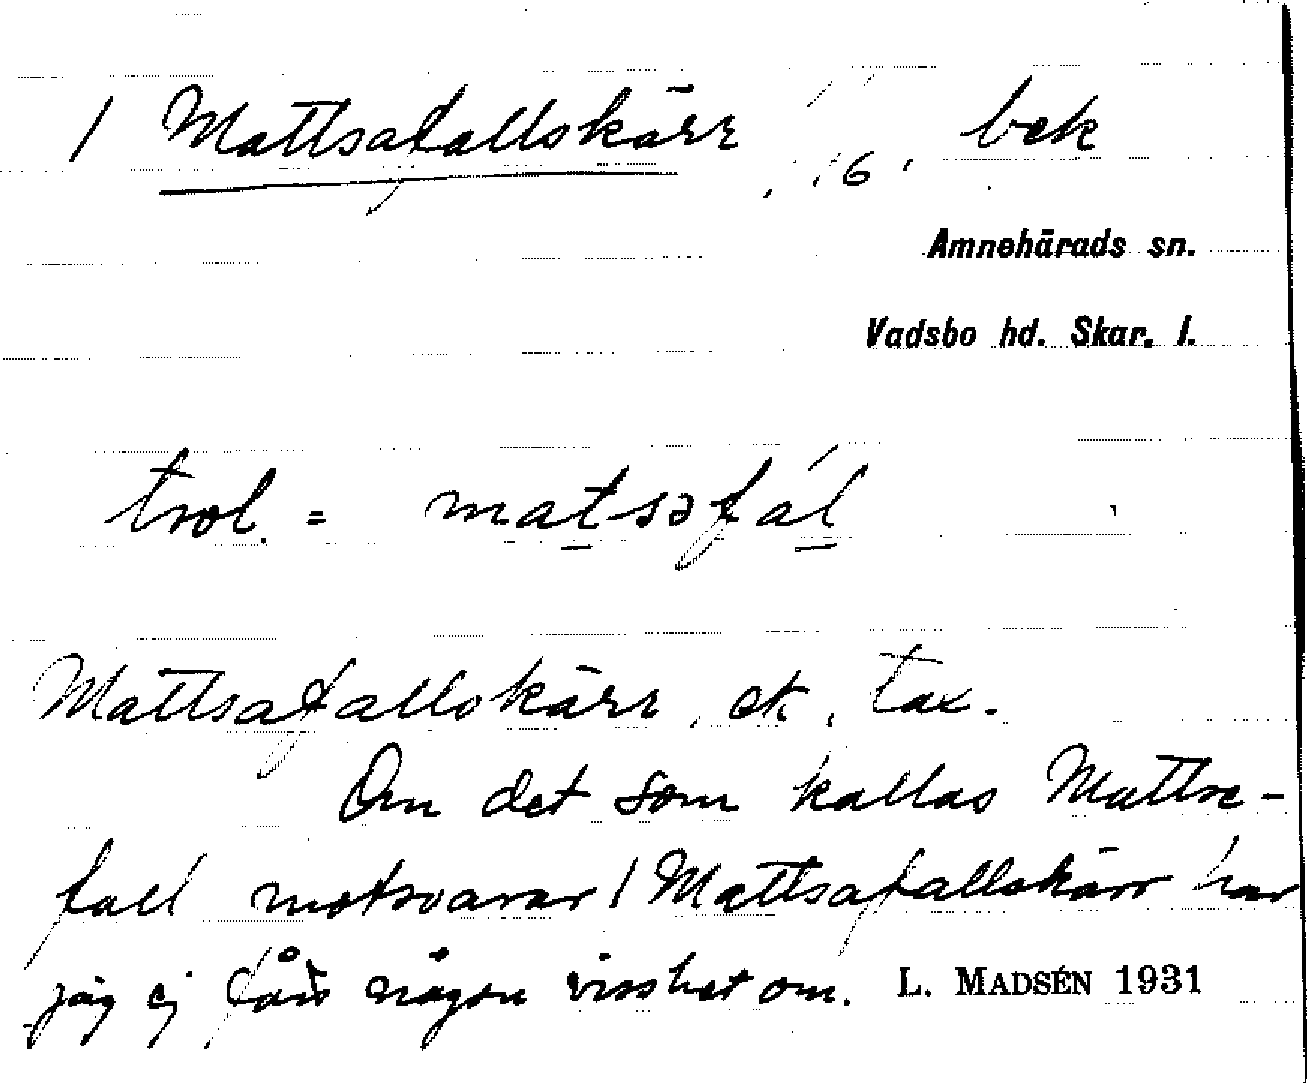 / Mattsafallskärr bek
16.
Amnehärads sn.
Vadsbo hd. Skar. l.
trol. = matsəfál
Mattsafallskärr, ek, tax.
Om det som kallas Mattse-
fall motsvarar / Mattsafallskärr har
jag ej fått någon visshet om. L. MADSÉN 1931